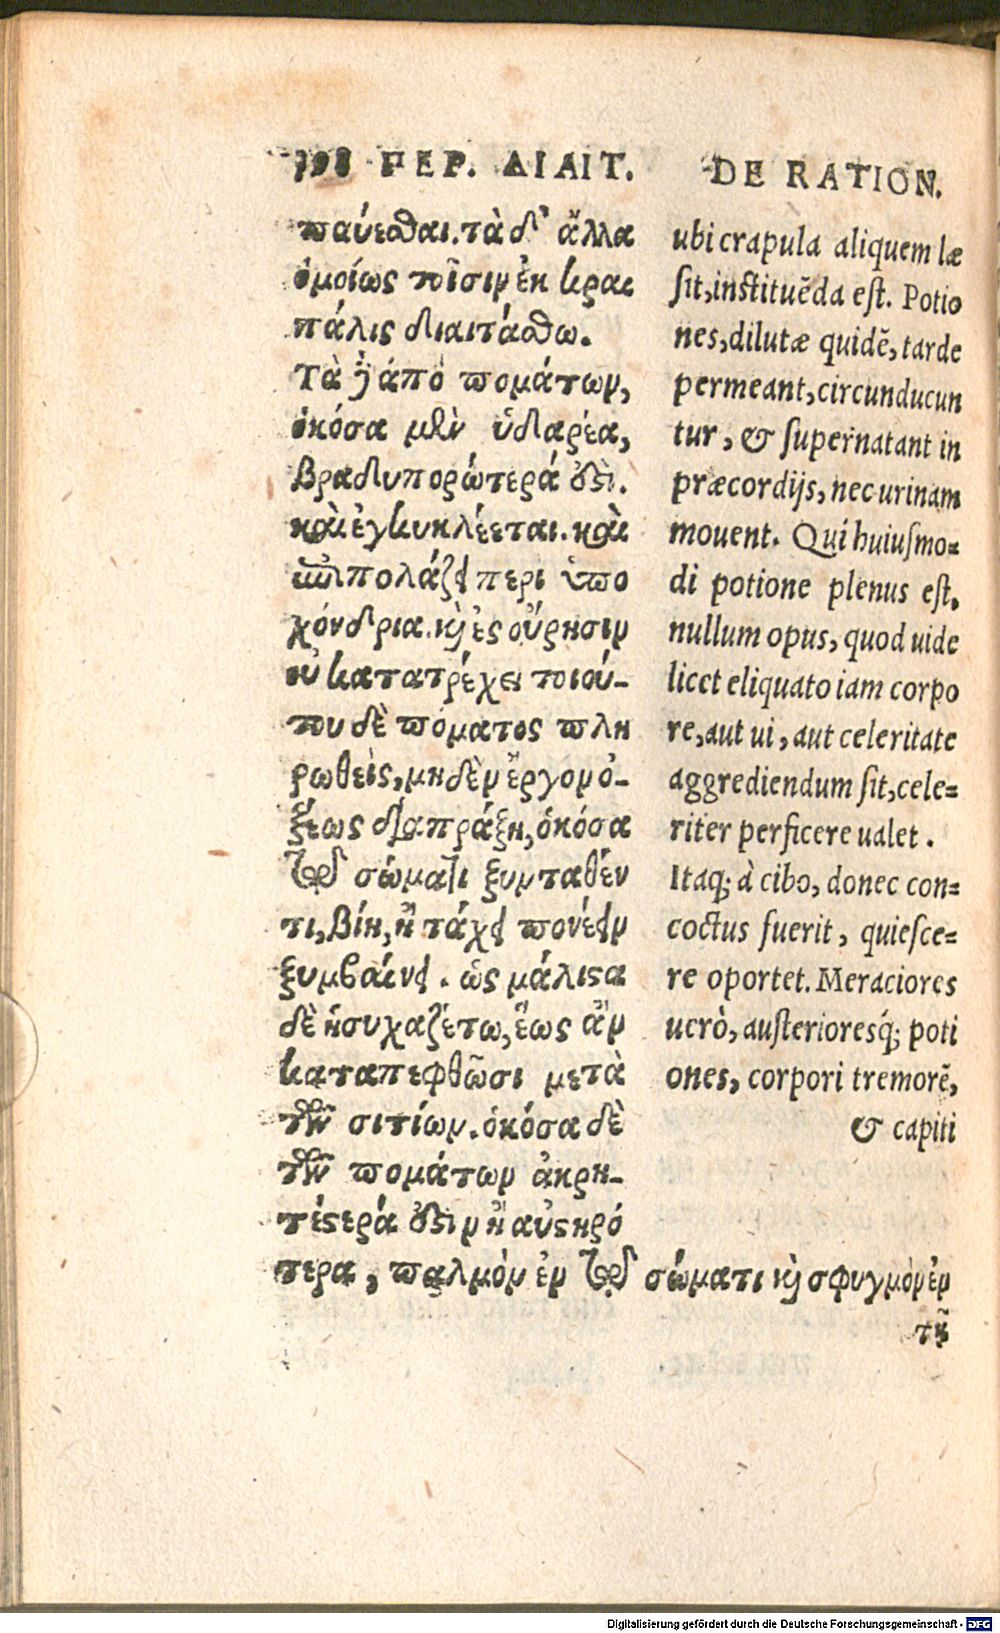 198 ΠΕΡ. ΔΙΑΙΤ.
παύεσθαι. τὰ δ' ἄλλα
ὁμοίως τοῖσιν ἐκ κραι
πάλις διαιτάσθω.
Τὰ δὲ ἀπὸ πομάτων,
ὁκόσα μὲν ὑδαρέα,
βραδυπορώτερά ἐστι.
καὶ ἐγκυκλέεται. καὶ
ἐπιπολάζει περι ὑπο
χόνδρια. καὶ ἐς οὔρησιν
οὐ κατατρέχει τοιού-
του δὲ πόματος πλη
ρωθεὶς, μηδὲν ἔργον ὀ-
ξέως διαπράξῃ, ὁκόσα
τῷ σώματι ξυνταθέν
τι, βίῃ, ἢ τάχει πονέειν
ξυμβαίνει. ὡς μάλιστα
δὲ ἡσυχαζέτω, ἕως ἂν
καταπεφθῶσι μετὰ
τῶν σιτίων. ὁκόσα δὲ
τῶν πομάτων ἀκρη-
τέστερά ἐστιν ἢ αὐστηρό
τερα, παλμὸν ἐν τῷ σώματι καὶ σφυγμὸν ἐν
τῇ
DE RATION.
ubi crapula aliquem læ
sit, instituẽda est. Potio
nes, dilutæ quidẽ, tarde
permeant, circunducun
tur, & supernatant in
præcordijs, nec urinam
mouent. Qui huiusmo=
di potione plenus est,
nullum opus, quod uide
licet eliquato iam corpo
re, aut ui, aut celeritate
aggrediendum sit, cele=
riter perficere ualet.
Itaq; à cibo, donec con=
coctus fuerit, quiesce=
re oportet. Meraciores
uerò, austerioresq́; poti
ones, corpori tremorẽ,
& capiti
Digitalisierung gefördert durch die Deutsche Forschungsgemeinschaft - DFG